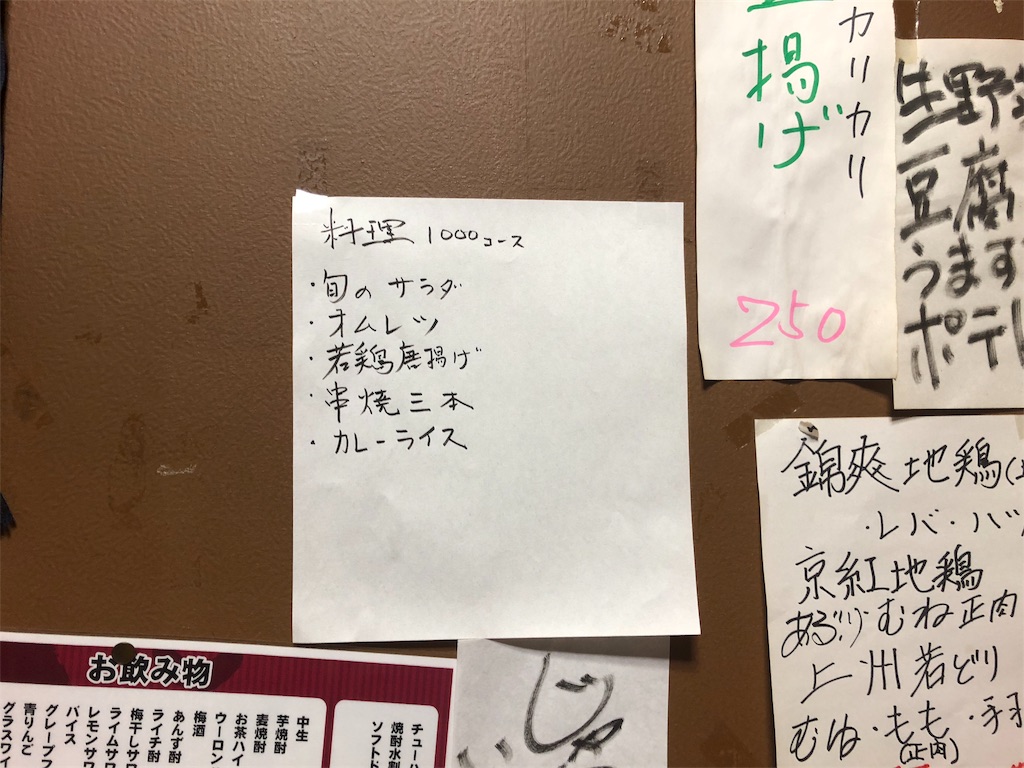 料理 1000コース
・旬のサラダ
・オムレツ
・若鶏唐揚げ
・串焼三本
・カレーライス
カリカリ
揚げ
250
生野
豆腐
うます
ポテ
錦爽地鶏
・レバ・
京紅地鶏
あぶり・むね正肉
上州若どり
むね・もも・手羽
(正肉)
お飲み物
中生
芋焼酎
麦焼酎
お茶ハイ
ウーロン
梅酒
あんず酎
ライチ酎
梅干しサワ
ライムサワ
レモンサワ
バイス
グレープフ
青りんご
グラスワイ
チューハ
焼酎水割
ソフトド